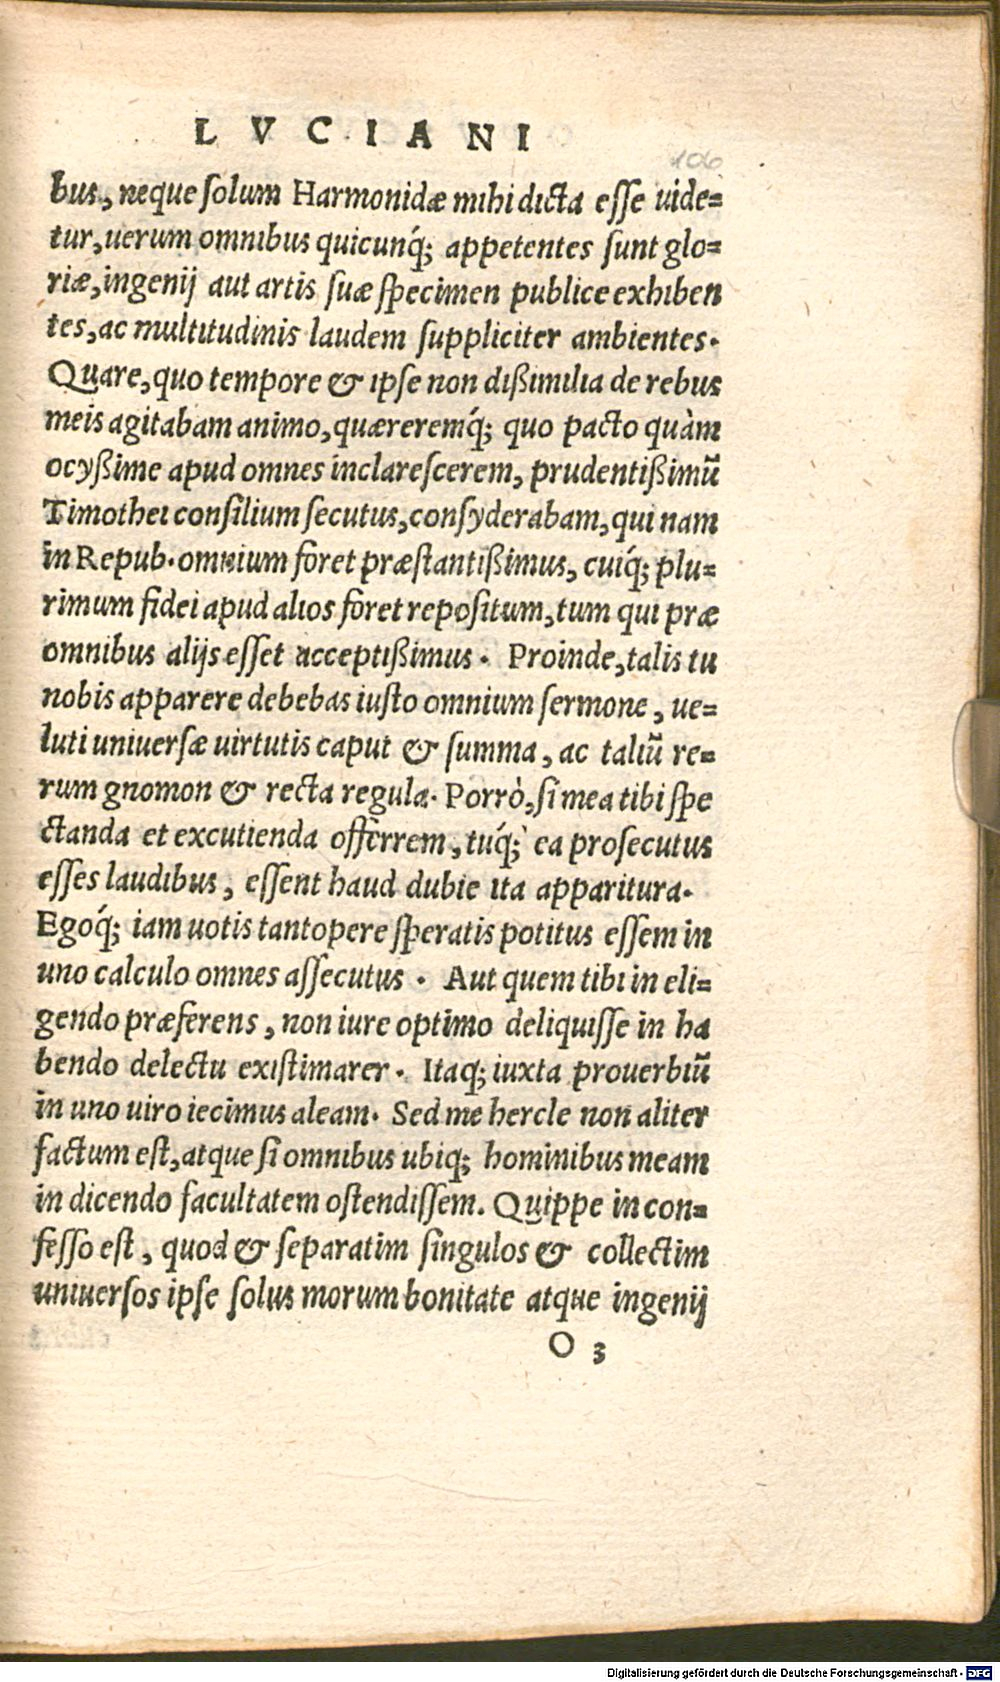 LVCIANI
106
bus, neque solum Harmonidæ mihi dicta esse uide=
tur, uerum omnibus quicunq́; appetentes sunt glo=
riæ, ingenij aut artis suæ specimen publice exhiben
tes, ac multitudinis laudem suppliciter ambientes.
Quare, quo tempore & ipse non dißimilia de rebus
meis agitabam animo, quæreremq́; quo pacto quàm
ocyßime apud omnes inclarescerem, prudentißimũ
Timothei consilium secutus, consyderabam, qui nam
in Repub. omnium foret præstantißimus, cuiq́; plu=
rimum fidei apud alios foret repositum, tum qui præ
omnibus alijs esset acceptißimus. Proinde, talis tu
nobis apparere debebas iusto omnium sermone, ue=
luti uniuersæ uirtutis caput & summa, ac taliũ re=
rum gnomon & recta regula. Porrò, si mea tibi spe
ctanda et excutienda offèrrem, tuq́; ea prosecutus
esses laudibus, essent haud dubie ita apparitura.
Egoq́; iam uotis tantopere speratis potitus essem in
uno calculo omnes assecutus. Aut quem tibi in eli=
gendo præferens, non iure optimo deliquisse in ha
bendo delectu existimarer. Itaq; iuxta prouerbiũ
in uno uiro iecimus aleam. Sed me hercle non aliter
factum est, atque si omnibus ubiq; hominibus meam
in dicendo facultatem ostendissem. Quippe in con=
fesso est, quod & separatim singulos & collectim
uniuersos ipse solus morum bonitate atque ingenij
O 3
Digitalisierung gefördert durch die Deutsche Forschungsgemeinschaft - DFG